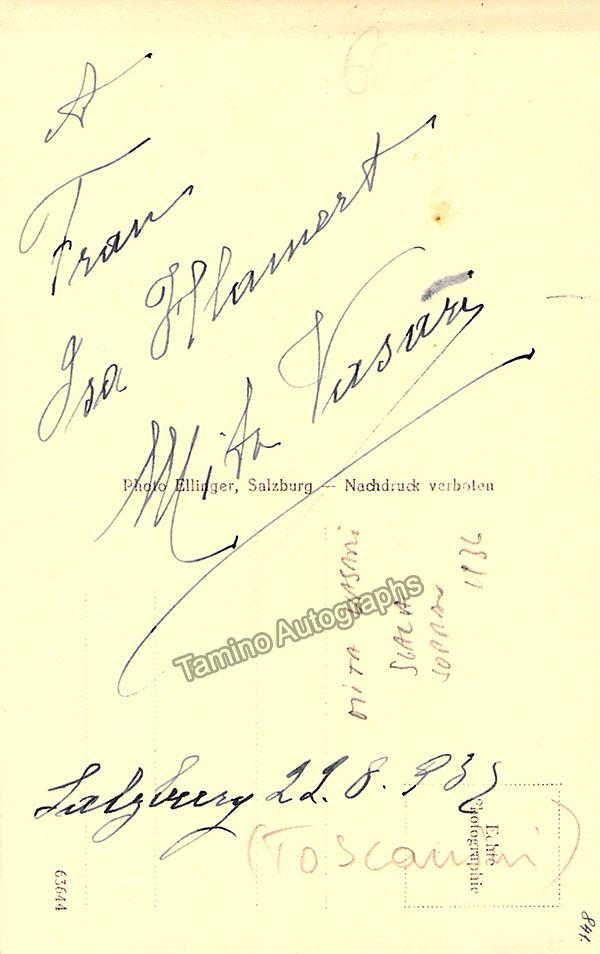 A
Frau
Isa Hlamert
Mita Vasari
Photo Ellinger, Salzburg — Nachdruck verboten
MITA VASARI
SCALA
SOPRAN 1936
Tamino Autographs
Salzburg 22. 8. 935
(TOSCANINI)
Echte
Photographie
63644
841.